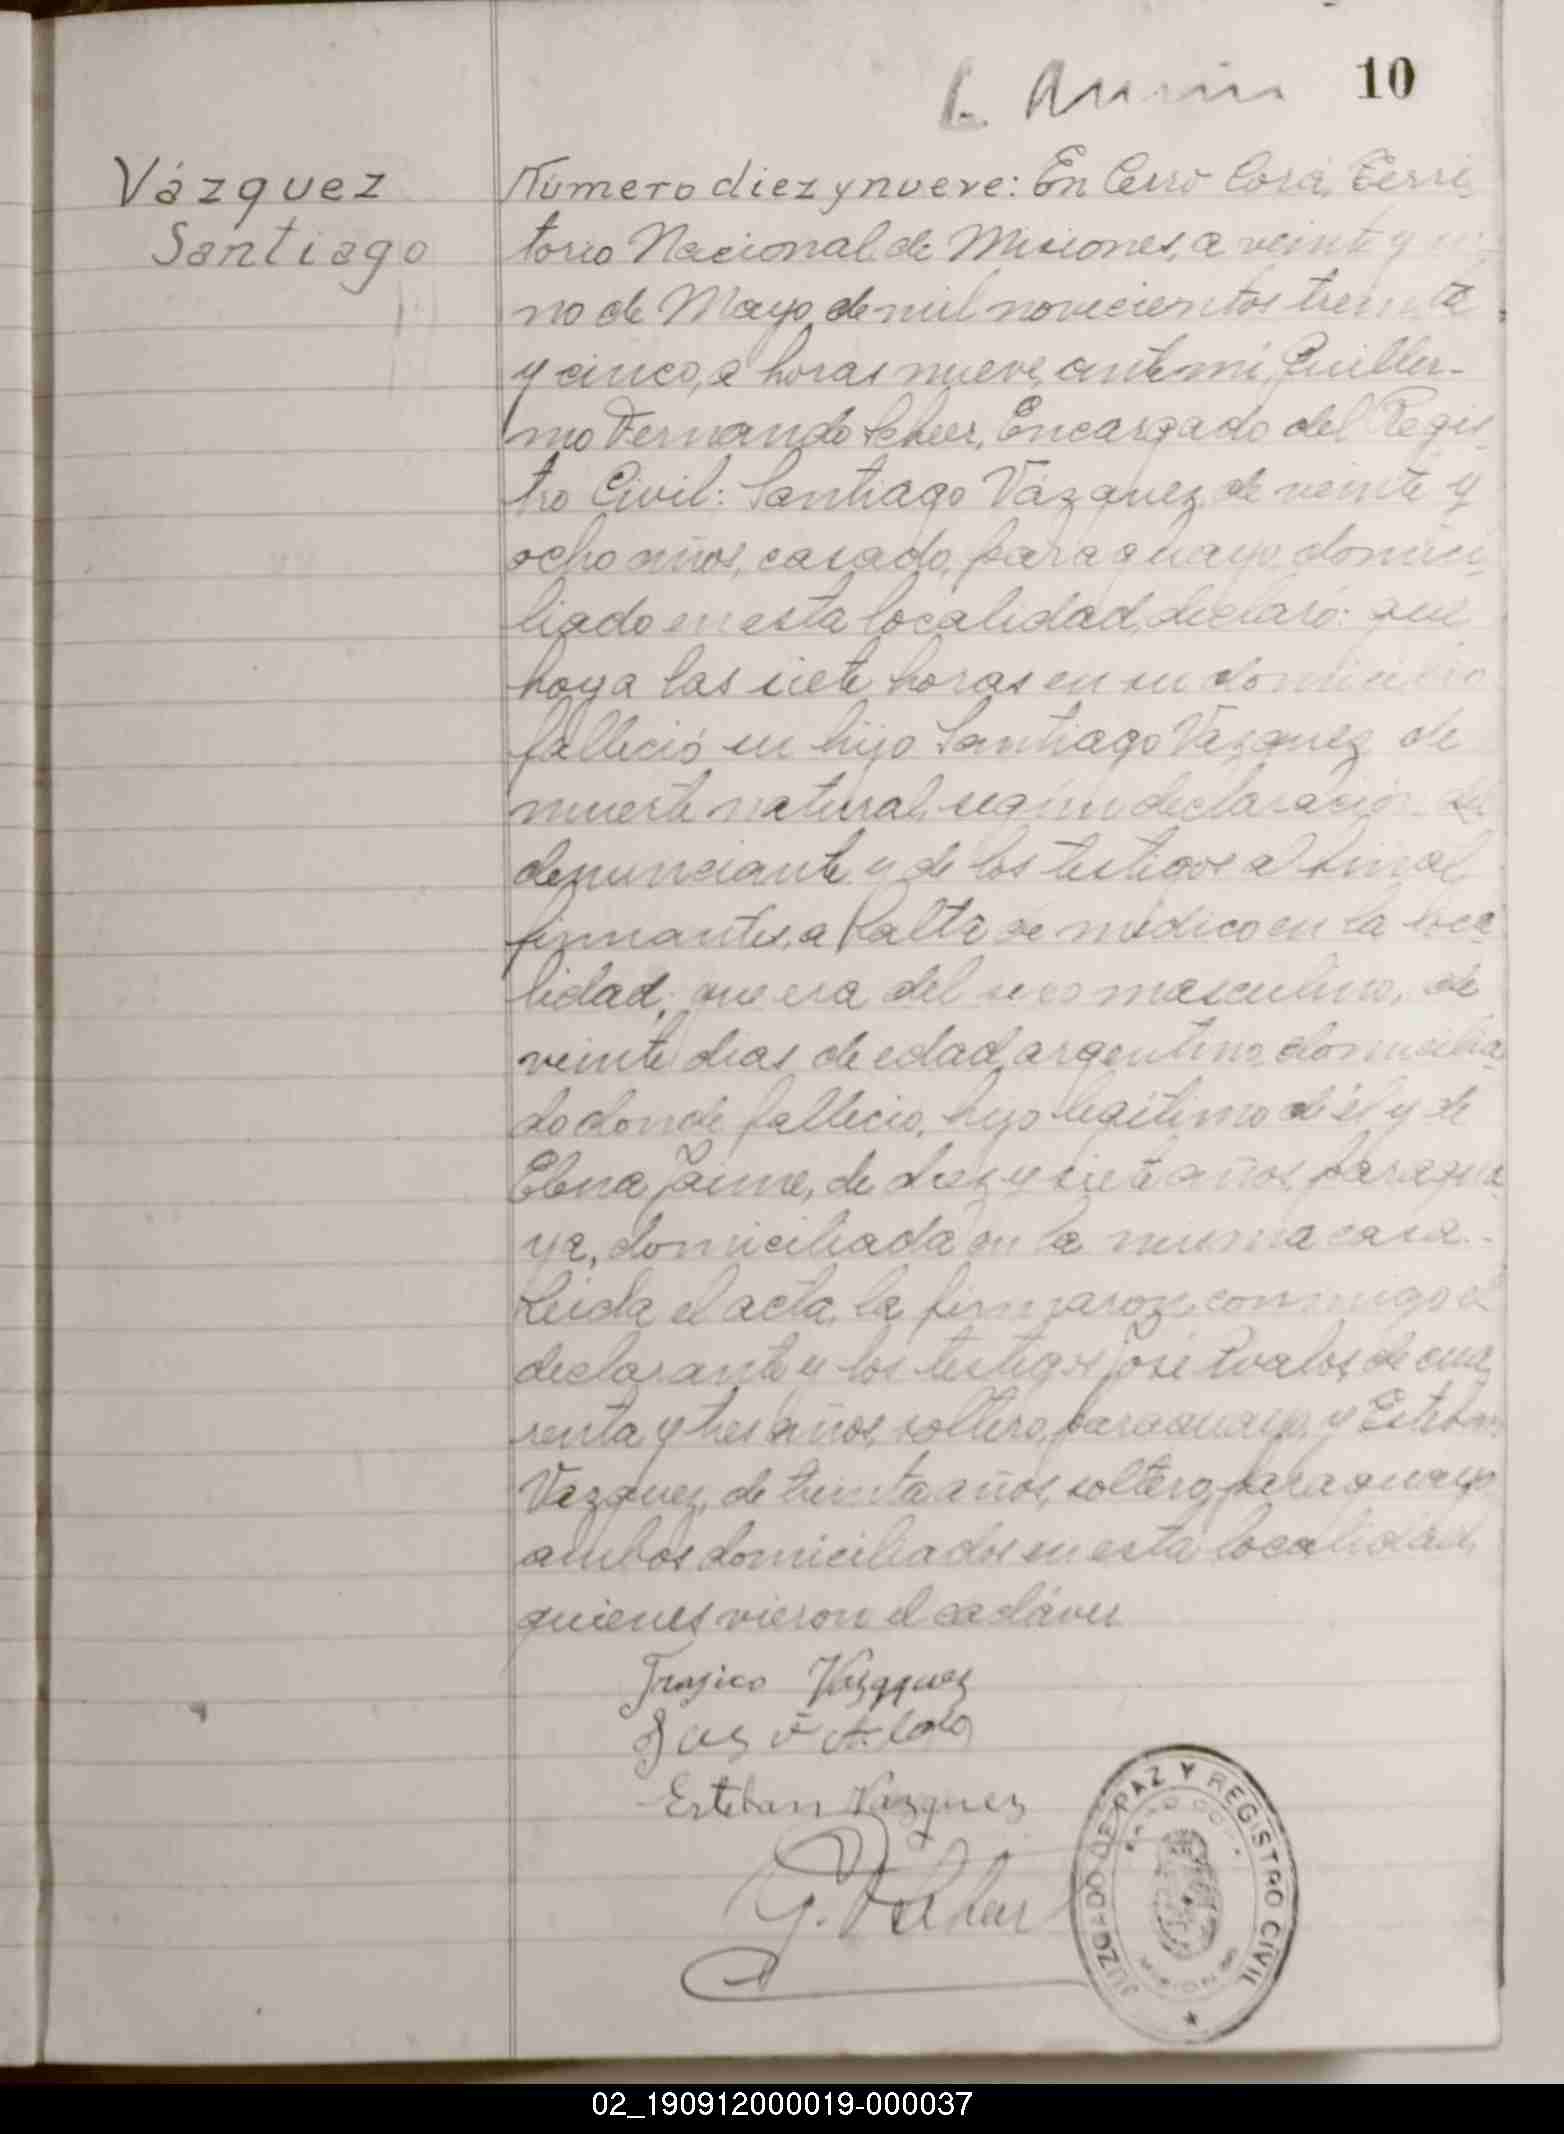 10
Vázquez
Santiago
Número diez y nueve: En Cerro Corá, Terri-
torio Nacional de Misiones, a veinte y u-
no de Mayo de mil novecientos treinta
y cinco, a horas nueve, ante mí, Guiller-
mo Fernando Scheer, Encargado del Regis-
tro Civil: Santiago Vázquez, de veinte y
ocho años, casado, paraguayo, domici-
liado en esta localidad, declaró: que
hoy a las siete horas en su domicilio
falleció su hijo Santiago Vázquez de
muerte natural, según declaración del
denunciante y de los testigos al final
firmantes, a falta de médico en la loca-
lidad; que era del sexo masculino, de
veinte dias de edad, argentino, domicilia-
do donde falleció, hijo legítimo de él y de
Elena Jaime, de diez y siete años, paragua-
ya, domiciliada en la misma casa.-
Leida el acta, la firmaron conmigo el
declarante y los testigos José Avalos, de cua-
renta y tres años, soltero, paraguayo, y Esteban
Vázquez, de treinta años, soltero, paraguayo
ambos domiciliados en esta localidad,
quienes vieron el cadáver
Vazqquez
Esteban Vazquez
JUZGADO DE PAZ Y REGISTRO CIVIL
MISIONES
02_190912000019-000037